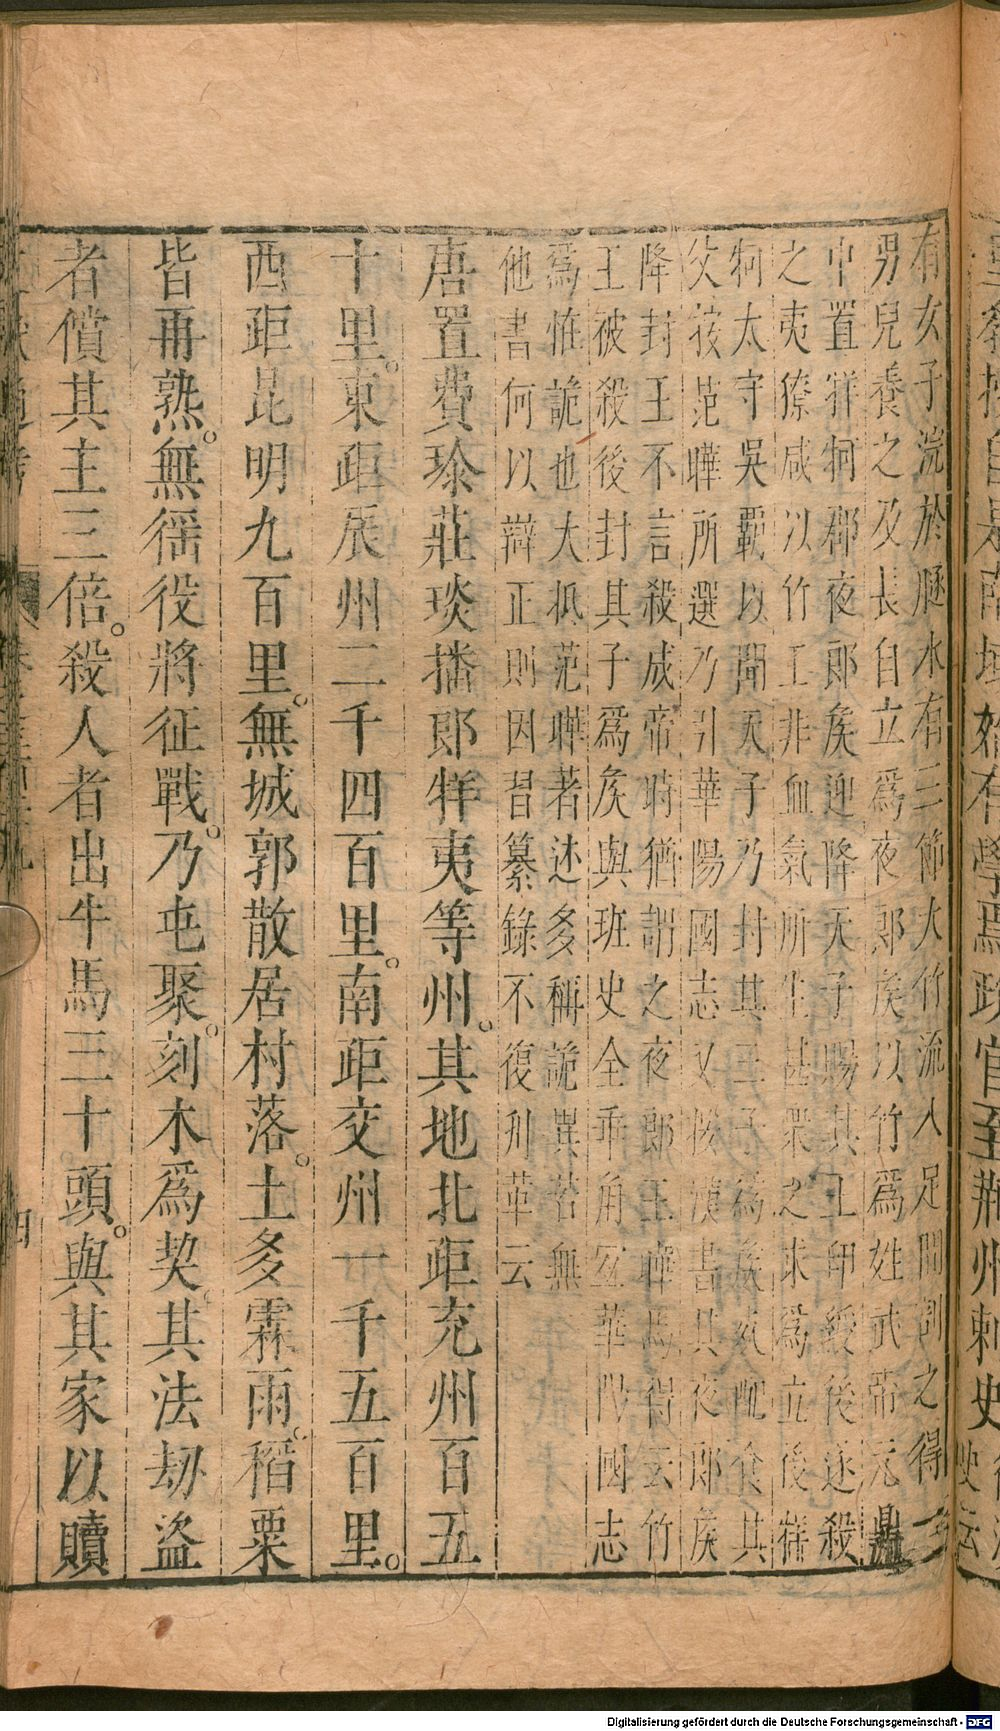 有女子浣於豚水有三節大竹流入足間剖之得一
男兒養之及長自立爲夜郎矦以竹爲姓武帝元鼎
中置牂牁郡夜郎矦迎降天子賜其王印綬後遂殺
之夷獠咸以竹王非血氣所生甚衆之求爲立後牂
牁太守吳覇以聞天子乃封其三子爲矦死配食其
父按范曄所選乃引華陽國志又按漢書其夜郎矦
降封王不言殺成帝時猶謂之夜郎王曄焉得云竹
王被殺後封其子爲矦與班史全乖角宐華陽國志
爲恠詭也大抵范曄著述多稱詭異若無
他書何以辯正則因習纂錄不復刋革云
唐置費珍莊琰播郎牂夷等州。其地北距充州百五
十里。東距辰州二千四百里。南距交州一千五百里。
西距昆明九百里。無城郭散居村落。土多霖雨。稻粟
皆再熟。無徭役將征戰。乃屯聚。刻木爲契。其法劫盜
者償其主三倍。殺人者出牛馬三十頭。與其家以贖
四
南
有學爲政官至荆州刺史
Digitalisierung gefördert durch die Deutsche Forschungsgemeinschaft - DFG